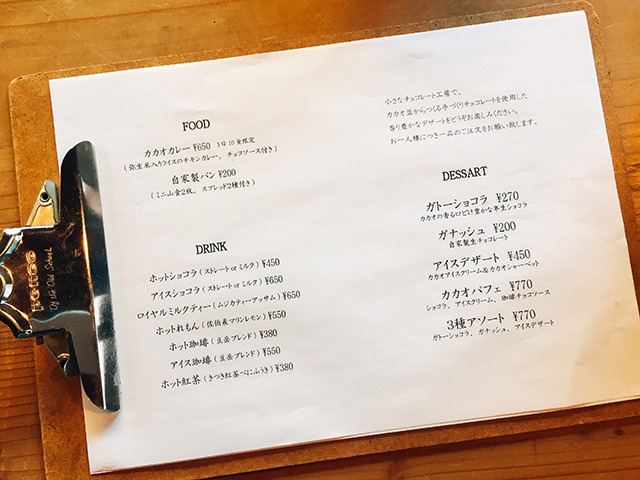 FOOD
カカオカレー ¥650 1日10食限定
(弥生米入りライスのチキンカレー。チョコソース付き)
自家製パン ¥200
(ミニ山食2枚。スプレッド2種付き)
DRINK
ホットショコラ (ストレートorミルク) ¥450
アイスショコラ (ストレートorミルク) ¥650
ロイヤルミルクティー (ムジカティーアッサム) ¥650
ホットれもん (佐伯産マリンレモン) ¥550
ホット珈琲 (豆岳ブレンド) ¥380
アイス珈琲 (豆岳ブレンド) ¥550
ホット紅茶 (きつき紅茶べにふうき) ¥380
小さなチョコレート工房で、
カカオ豆からつくる手づくりチョコレートを使用した
香り豊かなデザートをどうぞお楽しみください。
お一人様につき一品のご注文をお願い致します。
DESSART
ガトーショコラ ¥270
カカオの香る口どけ豊かな半生ショコラ
ガナッシュ ¥200
自家製生チョコレート
アイスデザート ¥450
カカオアイスクリーム&カカオシャーベット
カカオパフェ ¥770
ショコラ、アイスクリーム、珈琲チョコソース
3種アソート ¥770
ガトーショコラ、ガナッシュ、アイスデザート
PENCO
By the Old School